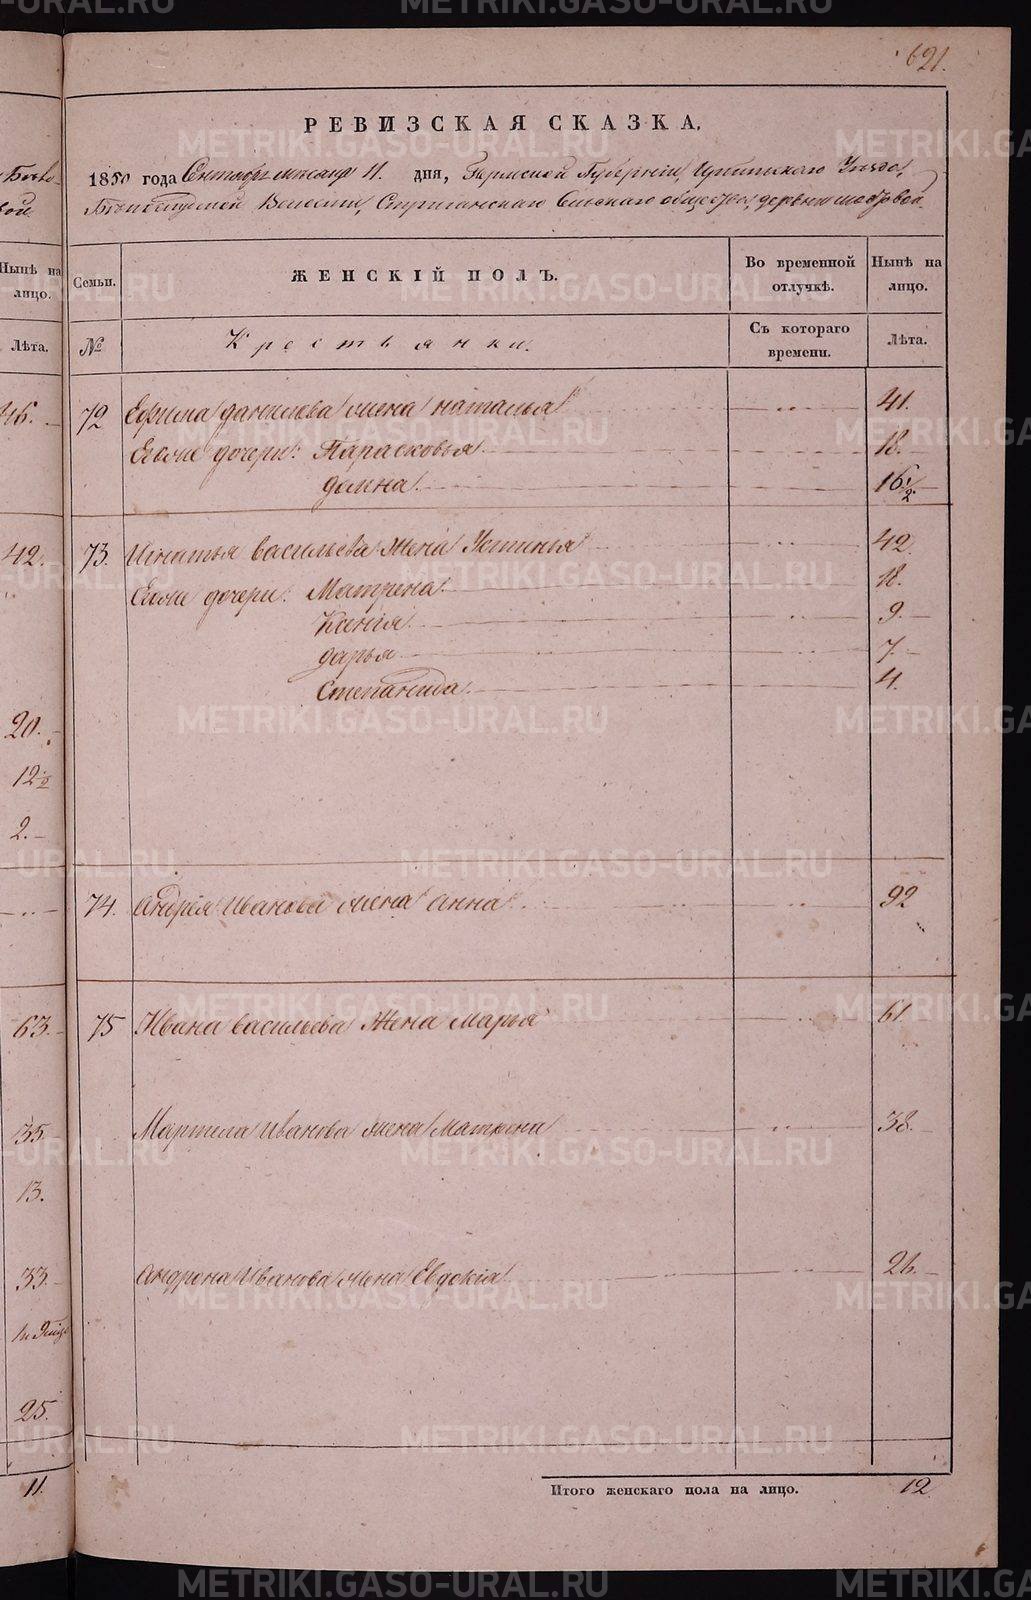 621.
РЕВИЗСКАЯ СКАЗКА.
1850 года Сентября месяца 11. дня, Пермской Губернии, Ирбитского Уезда,
Волости, Стриганскаго Сельскаго общества, деревни
Нынѣ на лицо.
Семьи.
ЖЕНСКІЙ ПОЛЪ.
Во временной отлучкѣ.
Нынѣ на лицо.
Лѣта.
№
Крестьянки.
Съ котораго времени.
Лѣта.
46. 72 Ефима Данилова жена Наталья 41.
Еѣоже дочери: Парасковья 18.
Домна 16 1/2
42. 73. Игнатья Васильева жена Устинья 42.
Еѣоже дочери: Матрена. 18.
Ксенія 9.
Дарья 7.
Степанида. 4.
20.
12
2.
74. Андрея Иванова жена Анна 92
63. 75 Ивана Васильева жена Марья 61
35 Иванова жена Матрена 38.
13.
33. Андрона Иванова жена Евдокія 26.
25.
11. Итого женскаго пола на лицо. 12
METRIKI.GASO-URAL.RU